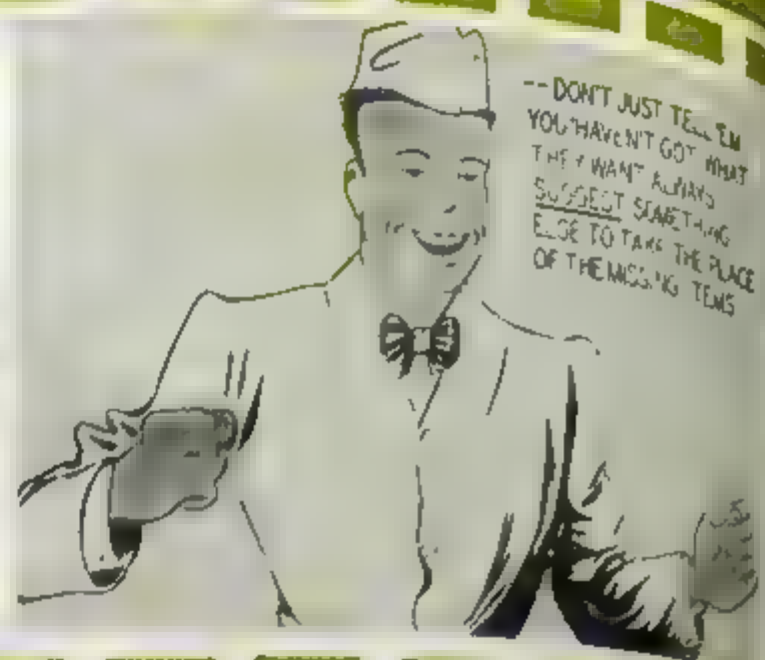 --DON'T JUST TELL 'EM
YOU HAVEN'T GOT WHAT
THEY WANT ALWAYS
SUGGEST SOMETHING
ELSE TO TAKE THE PLACE
OF THE MISSING ITEMS